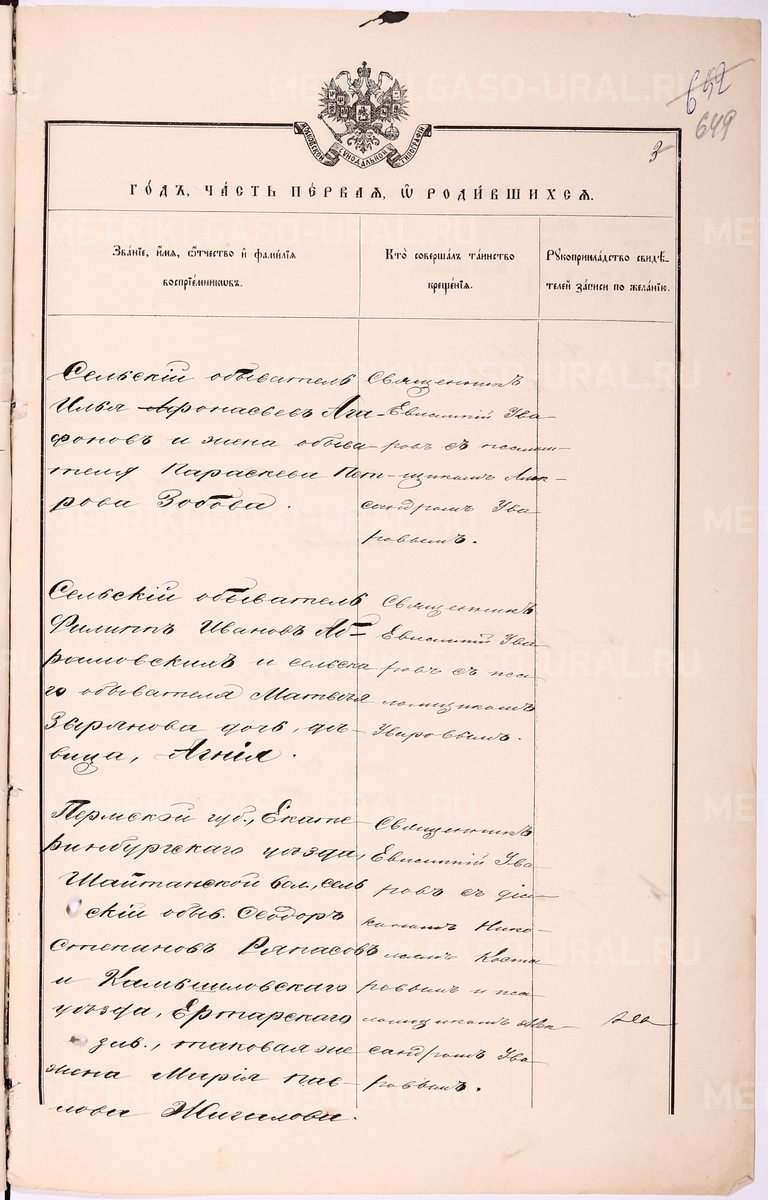 652
649
3
МОСКОВСКОЙ СѴНОДАЛЬНОЙ ТИПОГРАФІИ
ГО́ДЪ, ЧА́СТЬ ПЕ́РВАЯ, Ѽ РОДИ́ВШИХСЯ.
Зва́нїе, и҆́мя, ѻ҆́тчество и҆ фами́лїя
воспрїе́мникѡвъ.
Кто̀ соверша́лъ та́инство
креще́нїя.
Рꙋкоприкла́дство свидѣ́-
телей за́писи по жела́нїю.
Сельскій обыватель
Илья Афонасьевъ Ага-
фоновъ и жена обыва-
теля Параскева Пет-
рова Зобова.
Священникъ
Евсигній Ува-
ровъ съ псалом-
щикомъ Алек-
сандромъ Ува-
ровымъ.
Сельскій обыватель
Филиппъ Ивановъ Аб-
рамовскихъ и сельска
го обывателя Матвѣя
Зырянова дочь, дѣ-
вица, Агнія.
Священникъ
Евсигній Ува
ровъ съ пса-
ломщикомъ
Уваровымъ.
Пермской губ., Екате-
ринбургскаго уѣзда,
Шайтанской вол., сель
скій обыв. Ѳеодоръ
Степановъ Ряпасовъ
и Камышловскаго
уѣзда, Ертарскаго
зав., таковая же
жена Марія Пав-
лова Жигалова.
Священникъ
Евсигній Ува-
ровъ съ діа-
кономъ Нико-
лаемъ Коста
ревымъ и пса-
ломщикомъ Алек-
сандромъ Ува-
ровымъ.